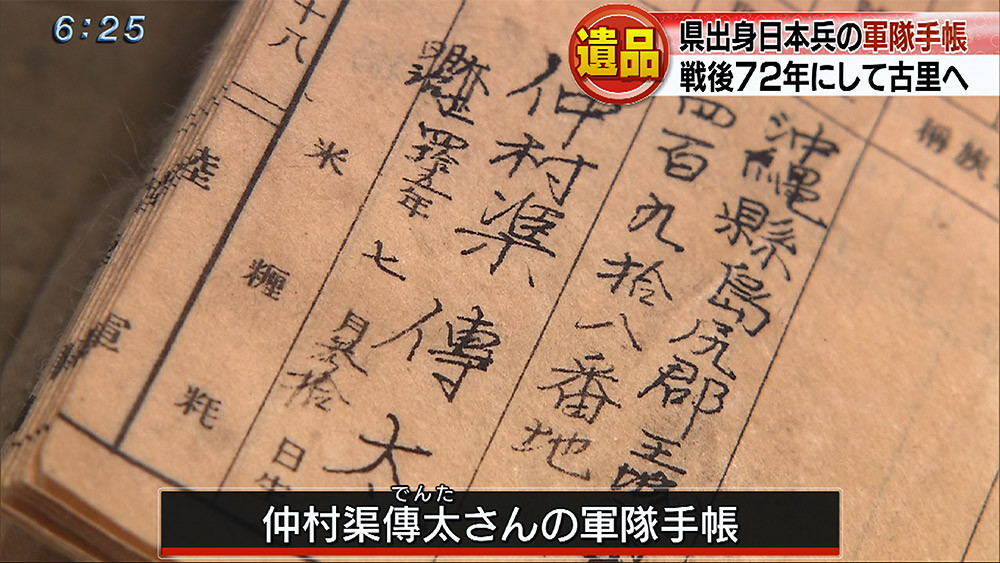 6:25
遺品
県出身日本兵の軍隊手帳
戦後72年にして古里へ
稱族
沖縄縣島尻郡
四百九拾八番地
仲村渠傳太
四拾五年七月拾日生
十八
米糎粍
陸軍
でんた
仲村渠傳太さんの軍隊手帳